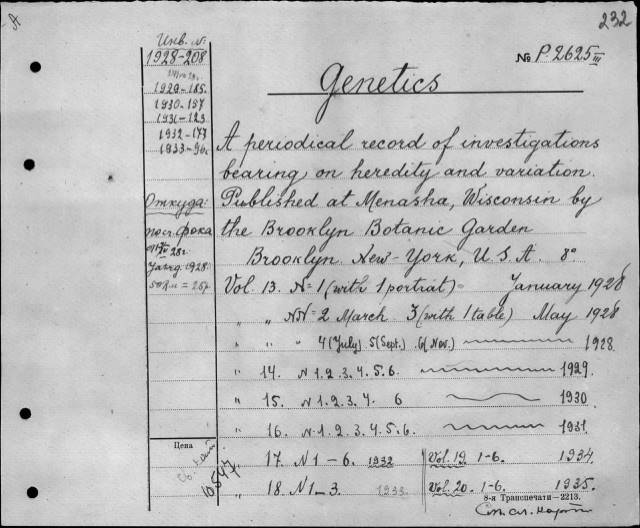 232
Инв. №
1928-208
№ P. 2625 III
Genetics
1929-185.
1930-157
1931-123
1932-177
1933-96.
A periodical record of investigations
bearing on heredity and variation.
Откуда:
Published at Menasha, Wisconsin by
the Brooklyn Botanic Garden
Brooklyn. New-York, U.S.A. 8°
Vol. 13. N=1 (with 1 portrait) = January 1928
" " NN=2 March 3 (with 1 table) May 1928
" " " 4 (July) 5 (Sept.) 6 (Nov.) 1928.
" 14. N 1.2.3.4.5.6. 1929.
" 15. N 1.2.3.4. 6 1930.
" 16. N 1.2.3.4.5.6. 1931.
Цена
17. N 1-6. 1932 Vol. 19 1-6. 1934.
" 18. N 1-3. 1933. Vol. 20. 1-6. 1935.
8-я Транспечати—2213.